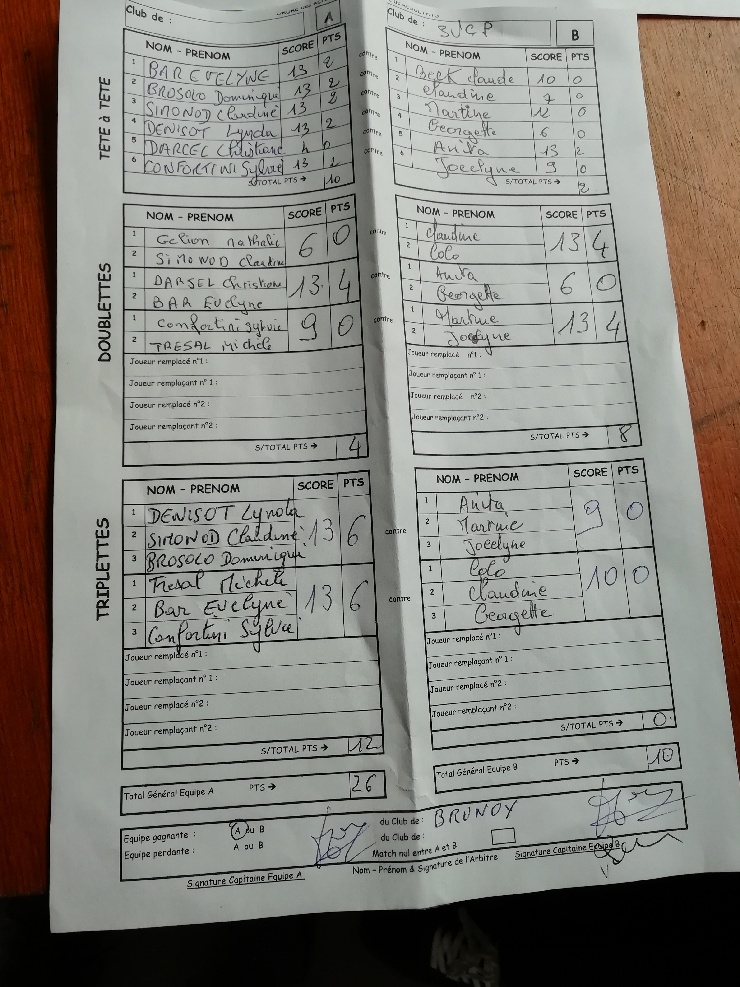 Club de :
A
TÊTE à TÊTE
NOM - PRENOM SCORE PTS
1 BAR EVELYNE 13 2
2 BROSOLO Dominique 13 2
3 SIMONOD Claudine 13 2
4 DENISOT Lynda 13 2
5 DARCEL Christiane
6 CONFORTINI Sylvie 13 2
S/TOTAL PTS → 10
contre
contre
contre
contre
contre
contre
Club de : SUCP
B
NOM - PRENOM SCORE PTS
1 Beck Claude 10 0
2 Claudine 7 0
3 Martine 12 0
4 Georgette 6 0
5 Anita 13 2
6 Jocelyne 9 0
S/TOTAL PTS → 2
DOUBLETTES
NOM - PRENOM SCORE PTS
1 Gelion nathalie 6 0
2 SIMONOD Claudine
1 DARSEL Christian 13 4
2 BAR Evelyne
1 Confortini Sylvie 9 0
2 TRESAL Michèle
Joueur remplacé n°1 :
Joueur remplaçant n° 1 :
Joueur remplacé n°2 :
Joueur remplaçant n°2 :
S/TOTAL PTS → 4
contre
contre
contre
NOM - PRENOM SCORE PTS
1 Claudine 13 4
2 Colo
1 Anita 6 0
2 Georgette
1 Martine 13 4
2 Jocelyne
Joueur remplacé n°1 :
Joueur remplaçant n° 1 :
Joueur remplacé n°2 :
Joueur remplaçant n°2 :
S/TOTAL PTS → 8
TRIPLETTES
NOM - PRENOM SCORE PTS
1 DENISOT Lynda 13 6
2 SIMONOD Claudine
3 BROSOLO Dominique
1 Tresal Michèle 13 6
2 Bar EVelyne
3 Confortini Sylvie
Joueur remplacé n°1 :
Joueur remplaçant n° 1 :
Joueur remplacé n°2 :
Joueur remplaçant n°2 :
S/TOTAL PTS → 12
contre
contre
NOM - PRENOM SCORE PTS
1 Anita 9 0
2 Martine
3 Jocelyne
1 Colo 10 0
2 Claudine
3 Georgette
Joueur remplacé n°1 :
Joueur remplaçant n° 1 :
Joueur remplacé n°2 :
Joueur remplaçant n°2 :
S/TOTAL PTS → 0
Total Général Equipe A PTS → 26
Total Général Equipe B PTS → 10
Equipe gagnante : A ou B du Club de : BRUNOY
Equipe perdante : A ou B du Club de :
Match nul entre A et B
Signature Capitaine Equipe A
Nom - Prénom & Signature de l'Arbitre
Signature Capitaine Equipe B